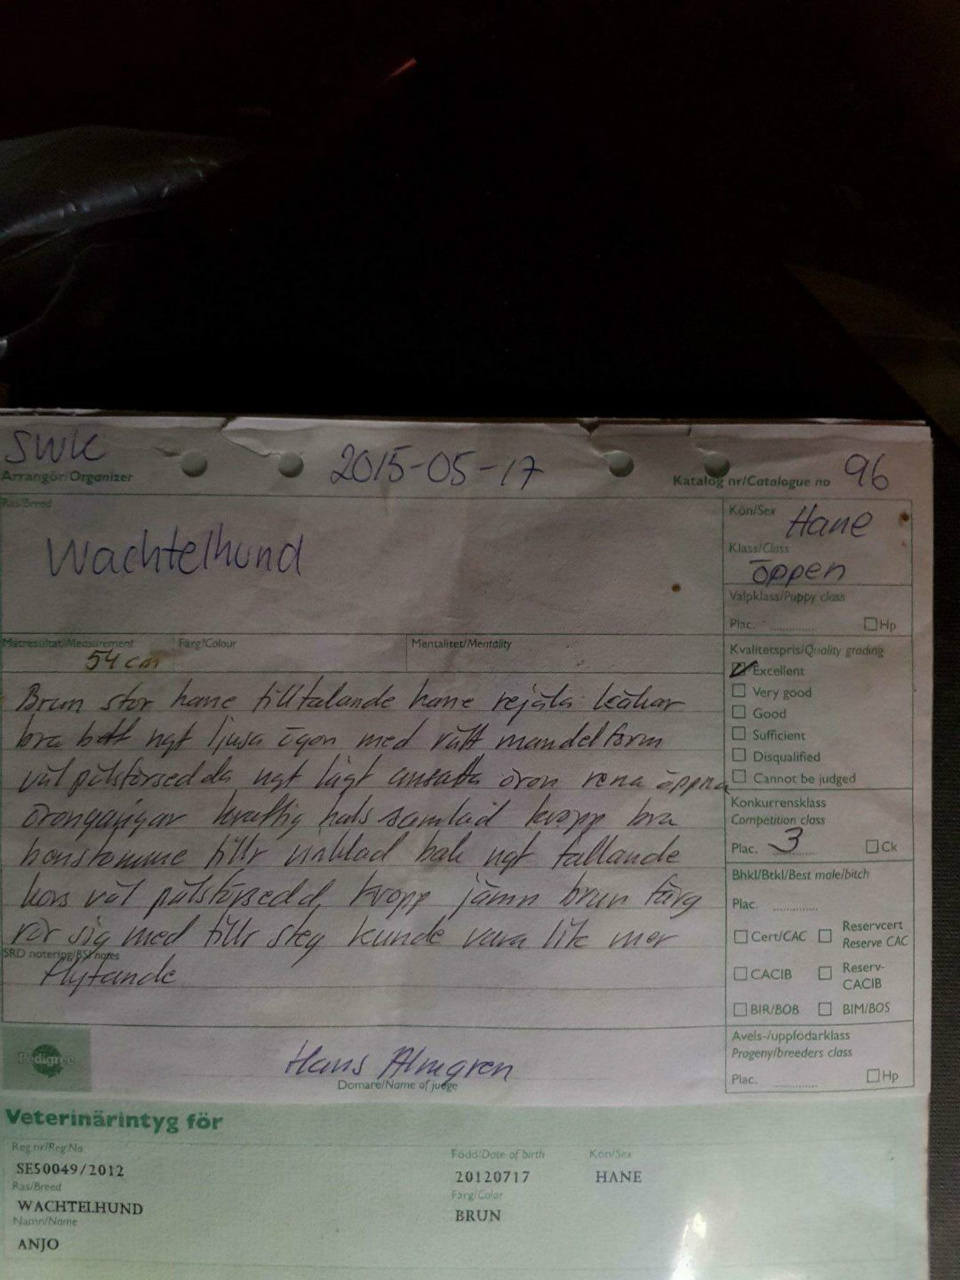 SWK
2015-05-17
96
Arrangör/Organizer
Katalog nr/Catalogue no
Ras/Breed
Wachtelhund
Kön/Sex
Hane
Klass/Class
öppen
Valpklass/Puppy class
Plac. ............ Hp
Mätresultat/Measurement
54 cm
Färg/Colour
Mentalitet/Mentality
Kvalitetspris/Quality grading
Excellent
Very good
Good
Sufficient
Disqualified
Cannot be judged
Brun stor hane tilltalande hane rejäla käkar
bra bett ngt ljusa ögon med rätt mandelform
väl pälsförsedda ngt lågt ansatta öron rena öppna
örongångar kraftig hals samlad kropp bra
benstomme tillr vinklad bak ngt fallande
kors väl pälsförsedd kropp jämn brun färg
rör sig med tillr steg kunde vara lite mer
flytande
SRD notering/BSI notes
Konkurrensklass
Competition class
Plac. 3 Ck
Bhkl/Btkl/Best male/bitch
Plac. ............
Cert/CAC
Reservcert
Reserve CAC
CACIB
Reserv-
CACIB
BIR/BOB
BIM/BOS
Avels-/uppfödarklass
Progeny/breeders class
Plac. ............ Hp
Pedigree
Hans Almgren
Domare/Name of judge
Veterinärintyg för
Reg.nr/Reg.No
SE50049/2012
Född/Date of birth
20120717
Kön/Sex
HANE
Ras/Breed
WACHTELHUND
Färg/Color
BRUN
Namn/Name
ANJO